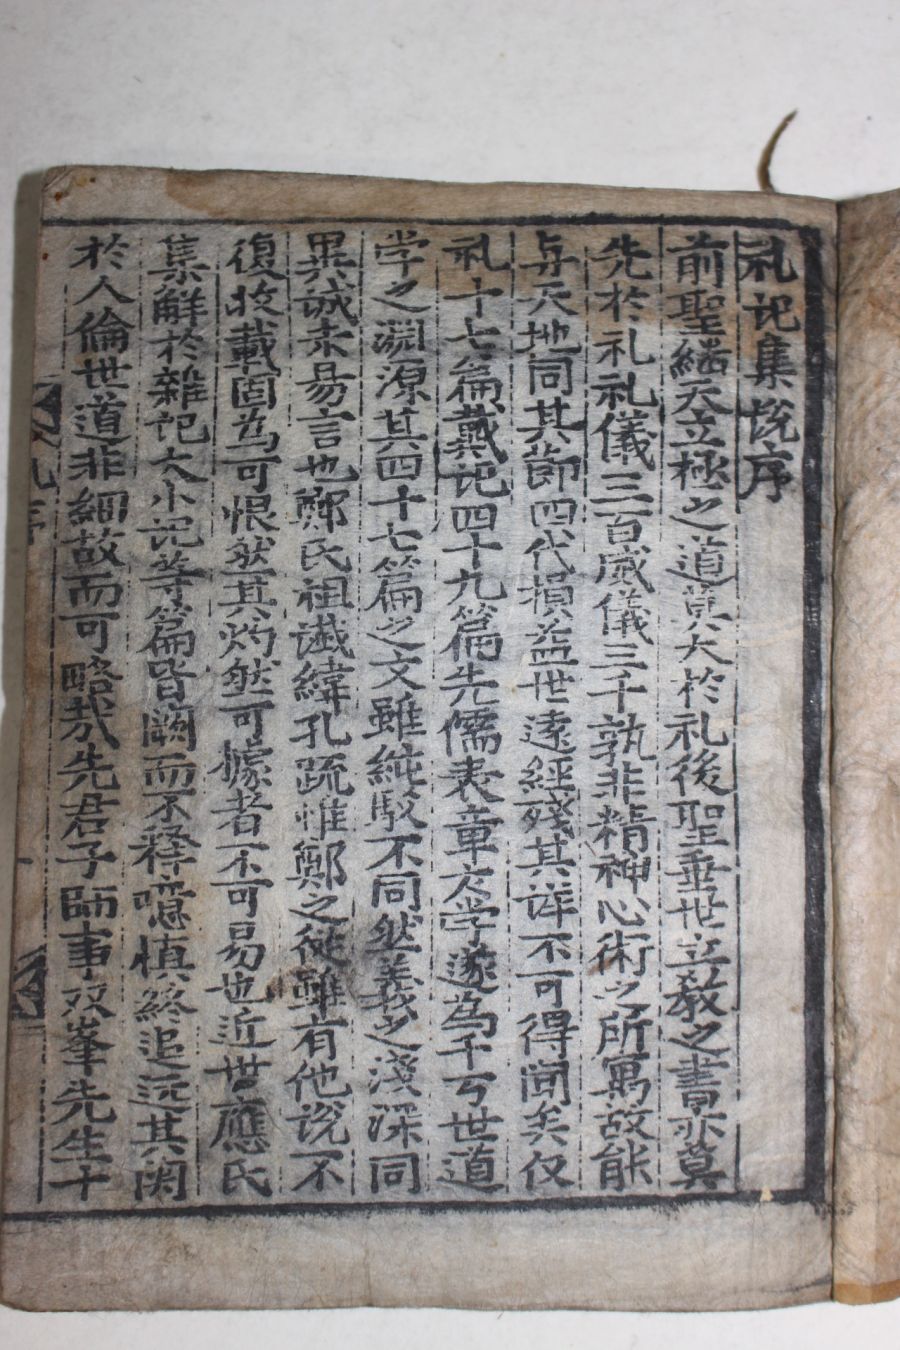 礼記集說序
前聖繼天立極之道莫大於礼後聖垂世立敎之書亦莫
先於礼礼儀三百威儀三千孰非精神心術之所寓故能
与天地同其節四代損益世遠經殘其详不可得聞矣仅
礼十七篇戴记四十九篇先儒表章大学遂為千万世道
学之淵源其四十七篇之文雖純駁不同然義之淺深同
異诚未易言也鄭氏祖讖緯孔疏惟鄭之従雖有他说不
復收載固為可恨然其灼然可據者不可易也近世應氏
集解於雜记大小记等篇皆闕而不释噫慎終追远其関
於人倫世道非細故而可略哉先君子師事双峯先生十
礼序